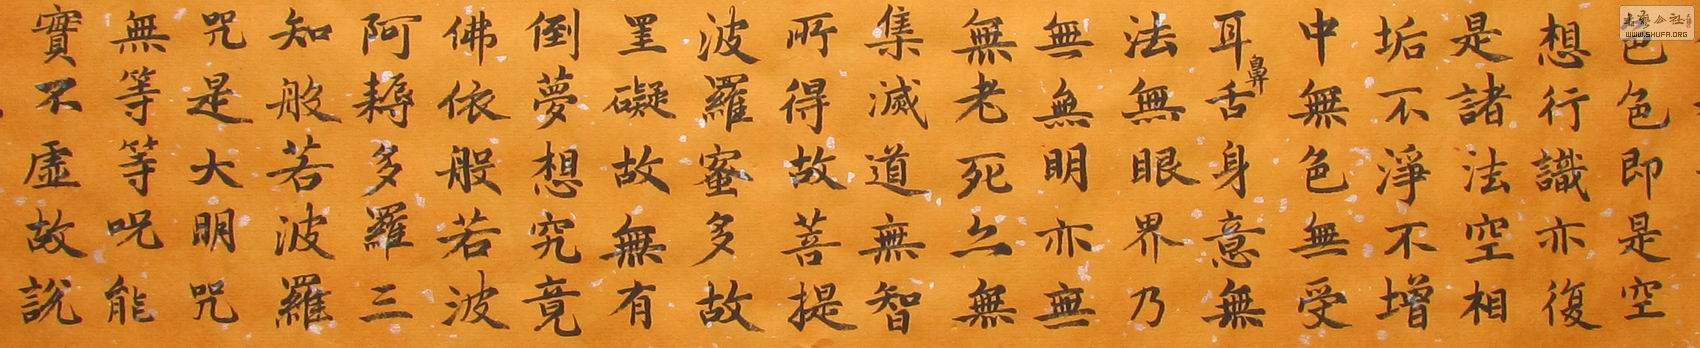 色色即是空
想行識亦復
是諸法空相
垢不淨不增
中無色無受
耳鼻舌身意無
法無眼界乃
無無明亦無
無老死無
集滅道無智
所得故菩提
波羅蜜多故
罣礙故無有
倒夢想究竟
佛依般若波
阿耨多羅三
知般若波羅
咒是大明咒
無等等呪能
實不虛故說
WWW.SHUFA.ORG